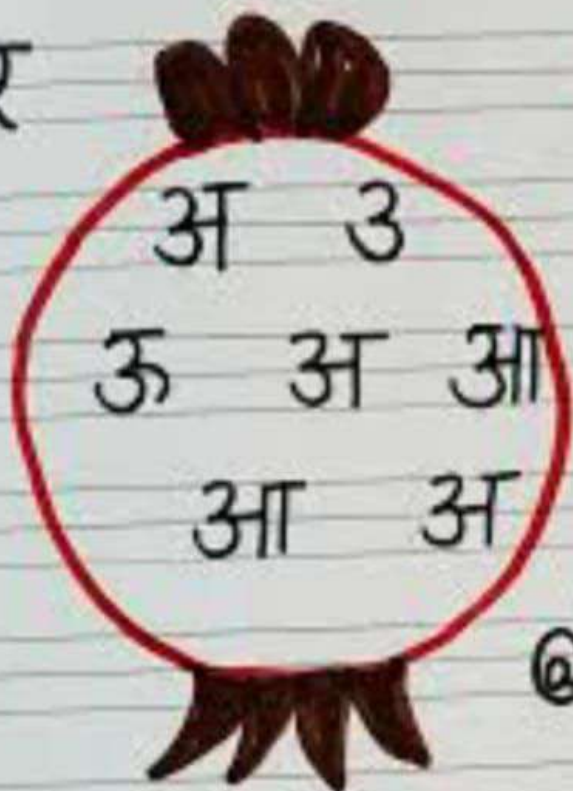 र
अ उ
ऊ अ आ
आ अ
@